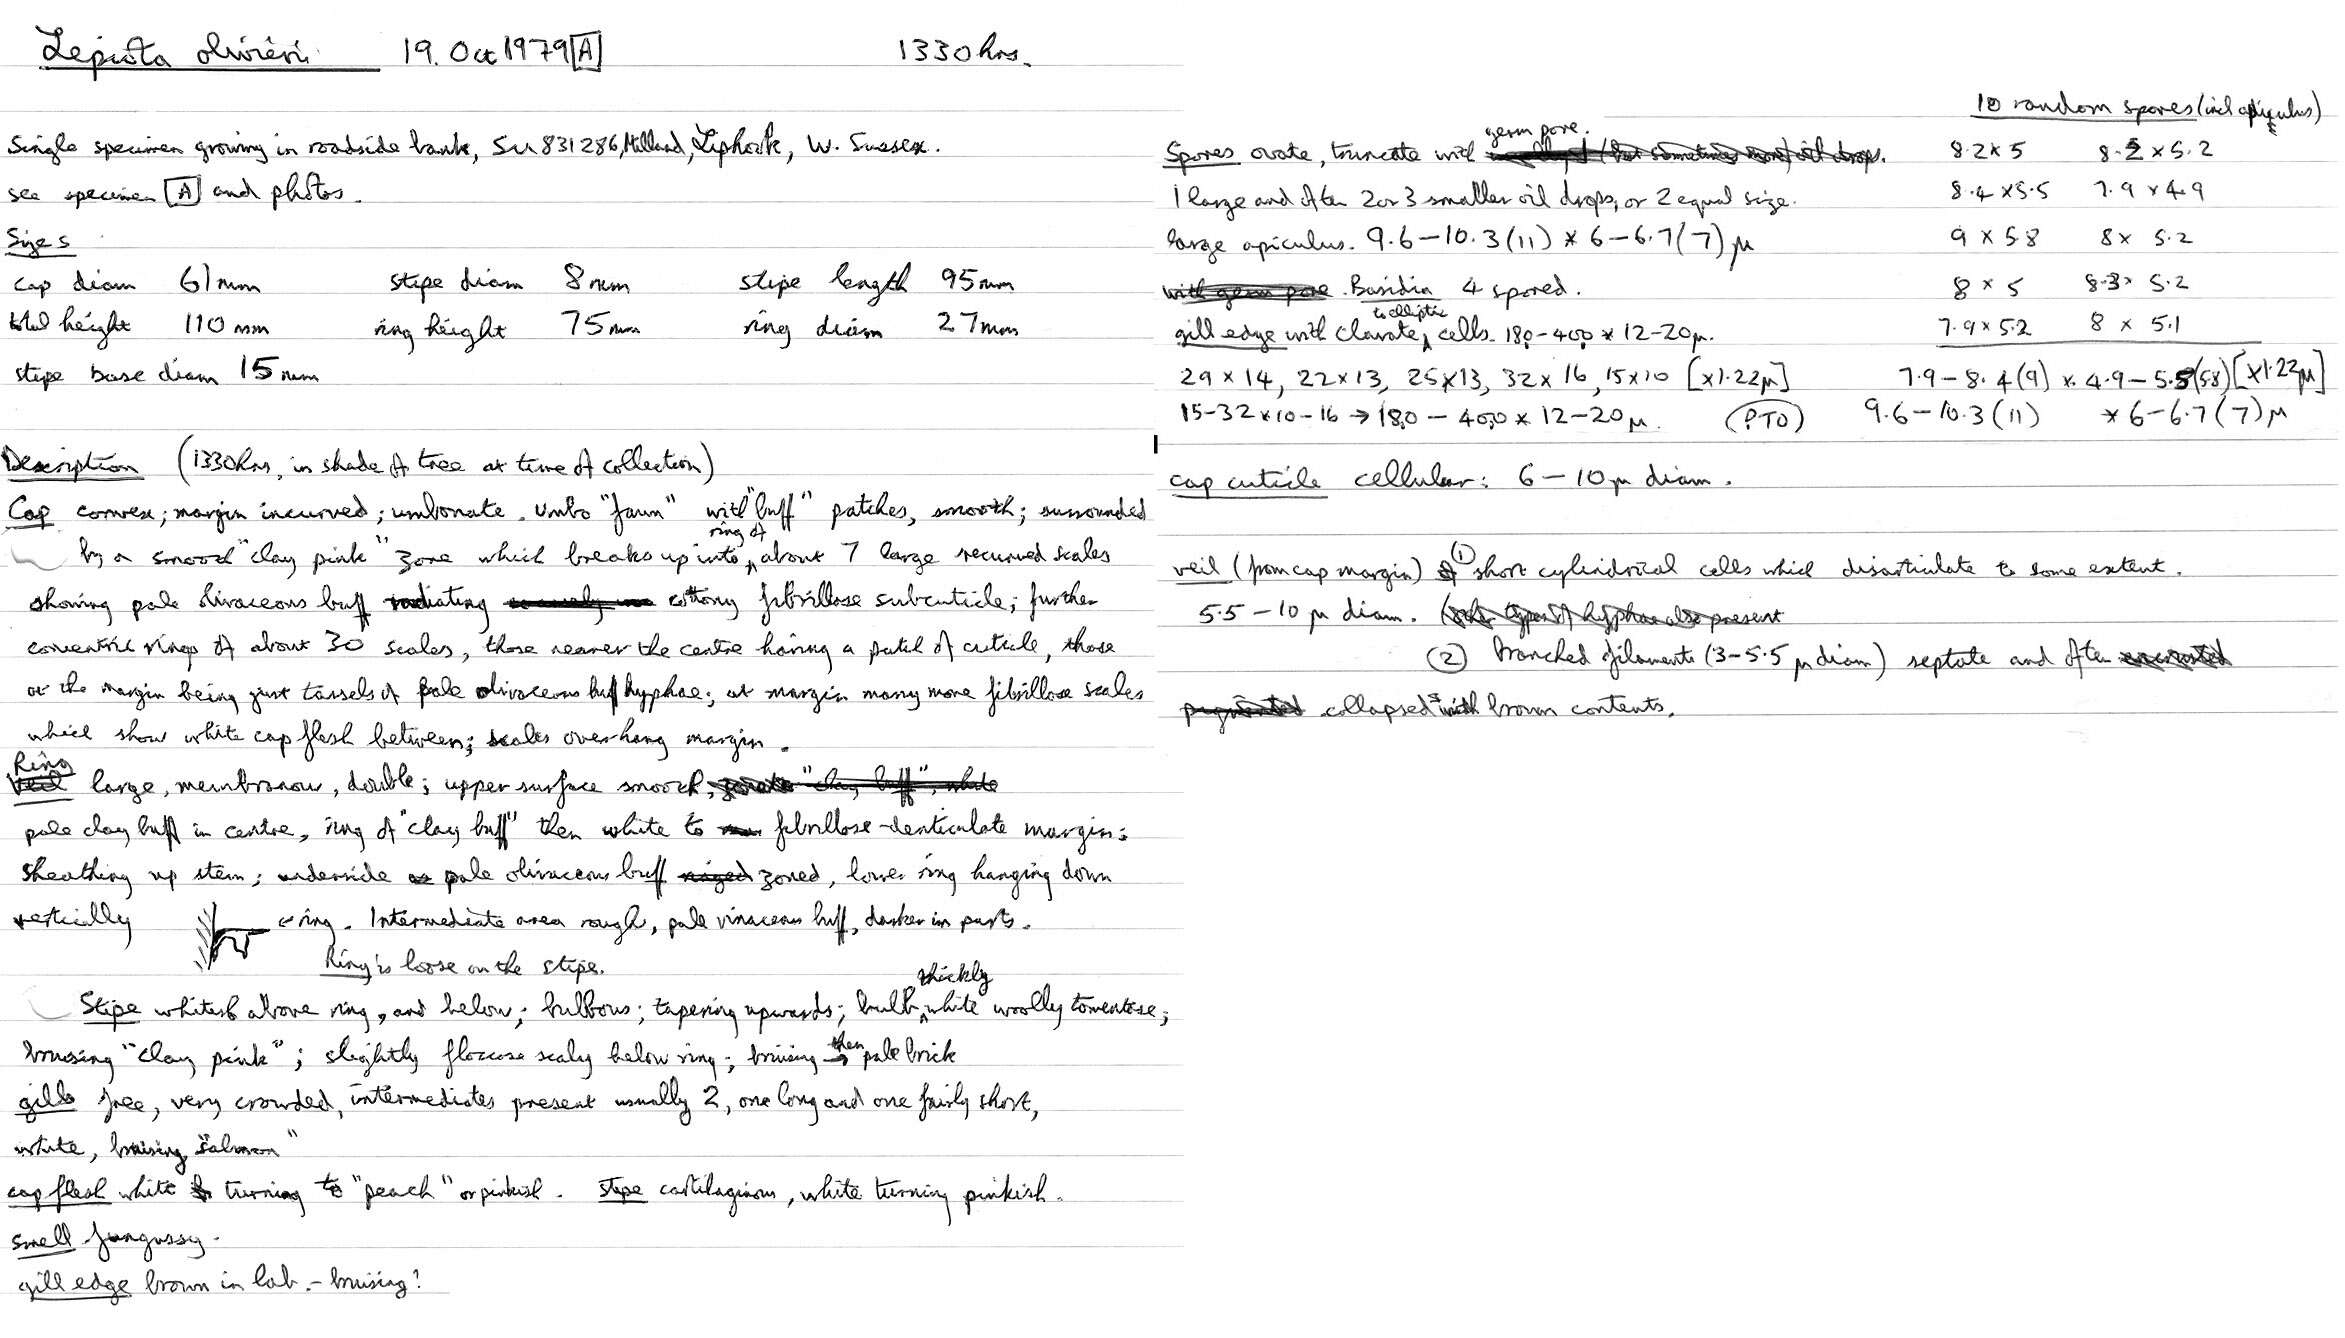 Lepiota olivieri 19. Oct 1979 [A] 1330 hrs.
Single specimen growing in roadside bank, SU 831286, Milland, Liphook, W. Sussex.
see specimen [A] and photos.
Sizes
cap diam 61mm stipe diam 8mm stipe length 95mm
total height 110mm ring height 75mm ring diam 27mm
stipe base diam 15mm
Description (1330hrs, in shade of tree at time of collection)
Cap convex; margin incurved; umbonate. Umbo "fawn" with "buff" patches, smooth; surrounded
by a smooth "clay pink" zone which breaks up into ring of about 7 large recurved scales
showing pale olivaceous buff radiating cottony fibrillose subcuticle; further
concentric rings of about 30 scales, those nearer the centre having a patch of cuticle, those
at the margin being just tassels of pale olivaceous buff hyphae; at margin many more fibrillose scales
which show white cap flesh between; scales overhang margin.
Ring large, membranous, double; upper surface smooth, "clay buff", white
pale clay buff in centre, ring of "clay buff" then white to fibrillose-denticulate margin;
sheathing up stem; underside pale olivaceous buff zoned, lower ring hanging down
vertically ← ring. Intermediate area rough, pale vinaceous buff, darker in parts.
Ring is loose on the stipe.
Stipe whitish above ring, and below; bulbous; tapering upwards; bulb thickly white woolly tomentose;
bruising "clay pink"; slightly floccose scaly below ring; bruising then pale brick
gills free, very crowded, intermediates present usually 2, one long and one fairly short,
white, bruising "salmon"
cap flesh white turning to "peach" or pinkish. stipe cartilaginous, white turning pinkish.
smell fungussy.
gill edge brown in lab. - bruising?
Spores ovate, truncate with germ pore. (but sometimes more) oil drops.
1 large and often 2 or 3 smaller oil drops, or 2 equal size.
large apiculus. 9.6-10.3(11) × 6-6.7(7) μ
with germ pore. Basidia 4 spored.
gill edge with clavate to elliptic cells. 18.0-40.0 × 12-20μ.
29 × 14, 22×13, 25×13, 32×16, 15×10 [×1.22μ]
15-32×10-16 → 18.0-40.0 × 12-20 μ. (PTO)
10 random spores (incl apiculus)
8.2×5 8.2×5.2
8.4×5.5 7.9×4.9
9×5.8 8×5.2
8×5 8.3×5.2
7.9×5.2 8×5.1
7.9-8.4(9) × 4.9-5.5(5.8) [×1.22μ]
9.6-10.3(11) × 6-6.7(7) μ
cap cuticle cellular: 6-10μ diam.
veil (from cap margin) ① short cylindrical cells which disarticulate to some extent.
5.5-10 μ diam. (other types of hyphae also present
② branched filaments (3-5.5 μ diam) septate and often encrusted
pigmented collapsed with brown contents.